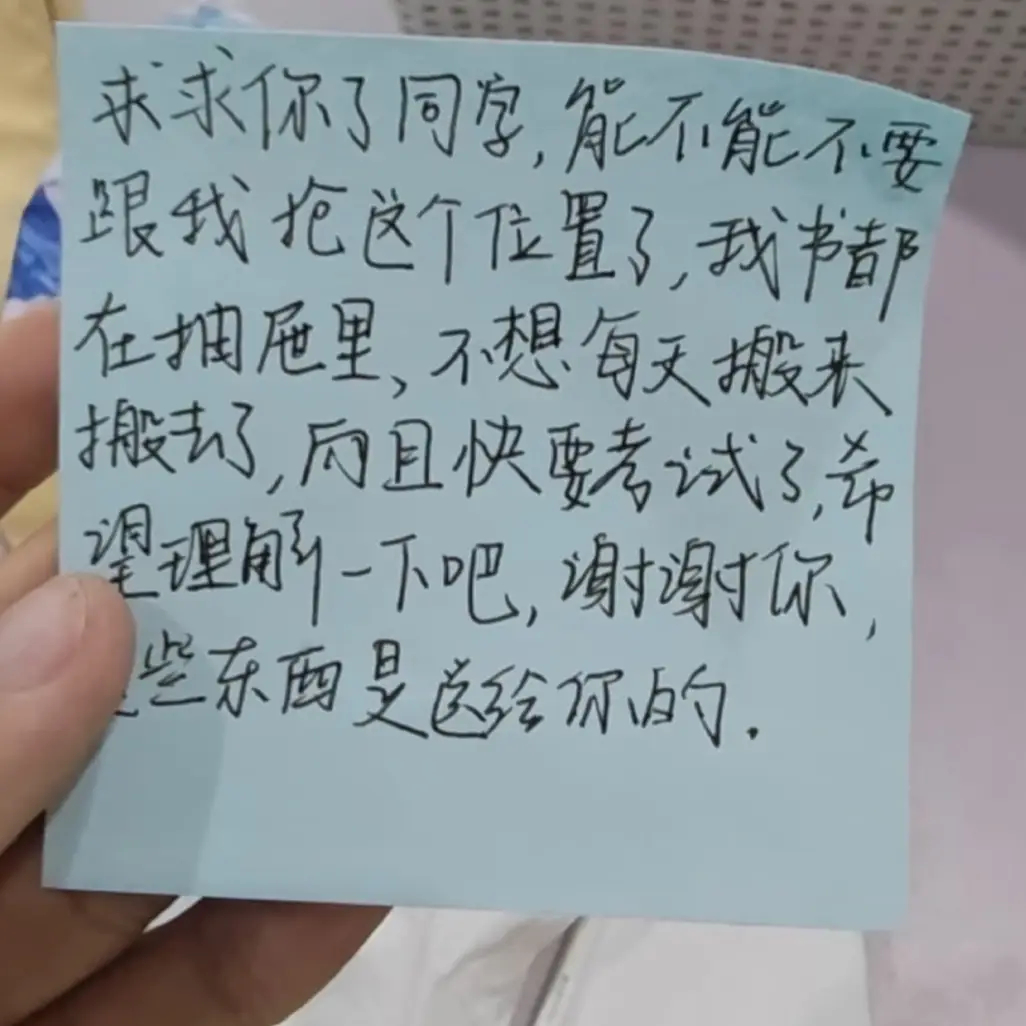 求求你了同学,能不能不要
跟我抢这个位置了,我书都
在抽屉里,不想每天搬来
搬去了,而且快要考试了,希
望理解一下吧,谢谢你,
这些东西是送给你的.